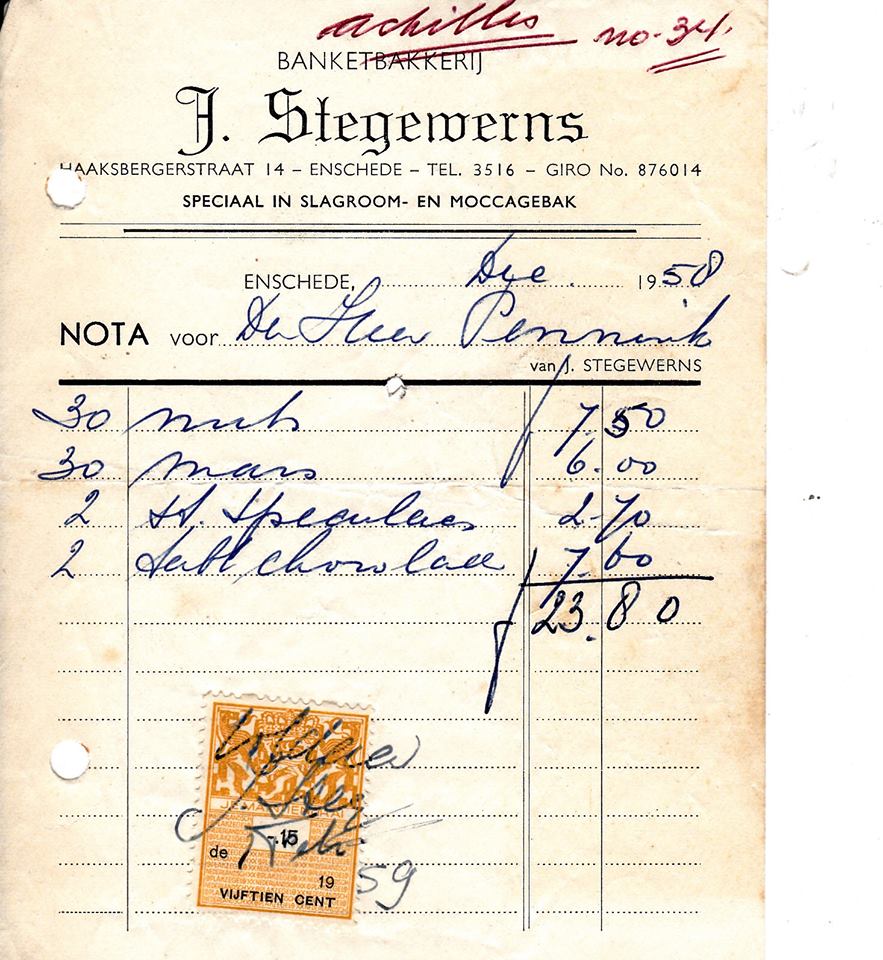 Achilles no. 34.
BANKETBAKKERIJ
J. Stegewerns
HAAKSBERGERSTRAAT 14 – ENSCHEDE – TEL. 3516 – GIRO No. 876014
SPECIAAL IN SLAGROOM- EN MOCCAGEBAK
ENSCHEDE, 1958
NOTA voor De Heer Pennink
van J. STEGEWERNS
30 nuts 7.50
30 mars 6.00
2 st. speculaas 2.70
2 chocolade 7.60
23.80
Voldaan
15
de
19 59
VIJFTIEN CENT